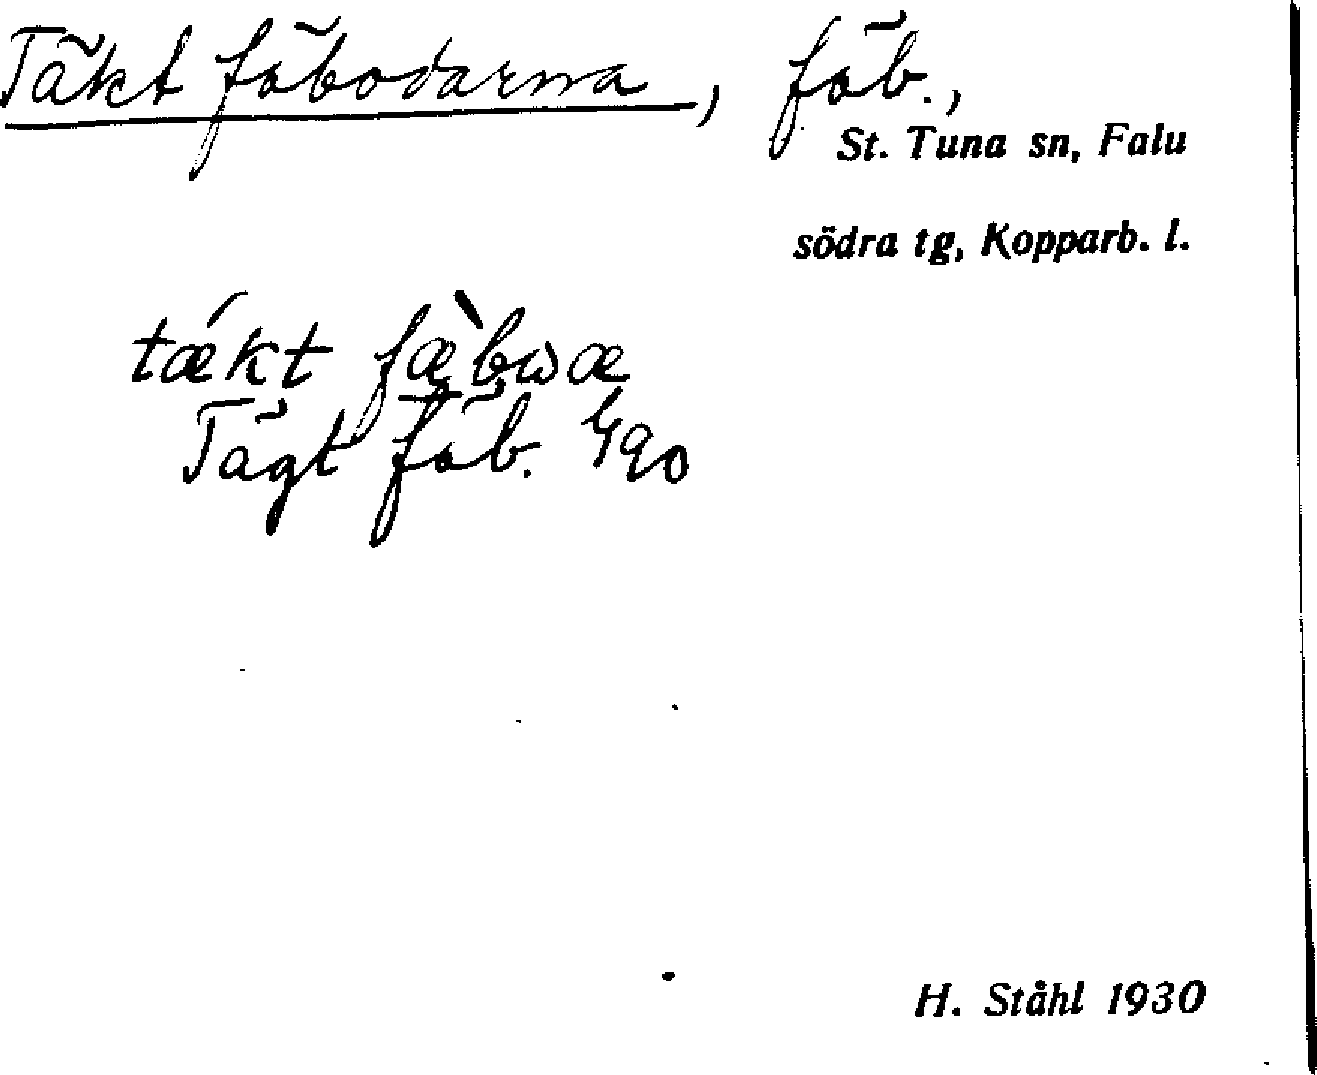 Täkt fäbodarna, fäb.,
St. Tuna sn, Falu
södra tg, Kopparb. l.
tǽkt fæ̀bωæ
Tägt fäb. G90
H. Ståhl 1930